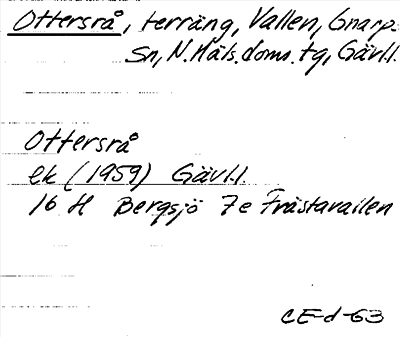 Ottersrå, terräng, Vallen, Gnarps
Sn, N. Häls. doms. tg, Gävl.l.
Ottersrå
ek (1959) Gävl.l.
16 H Bergsjö 7e Frästavallen
CE-d-63